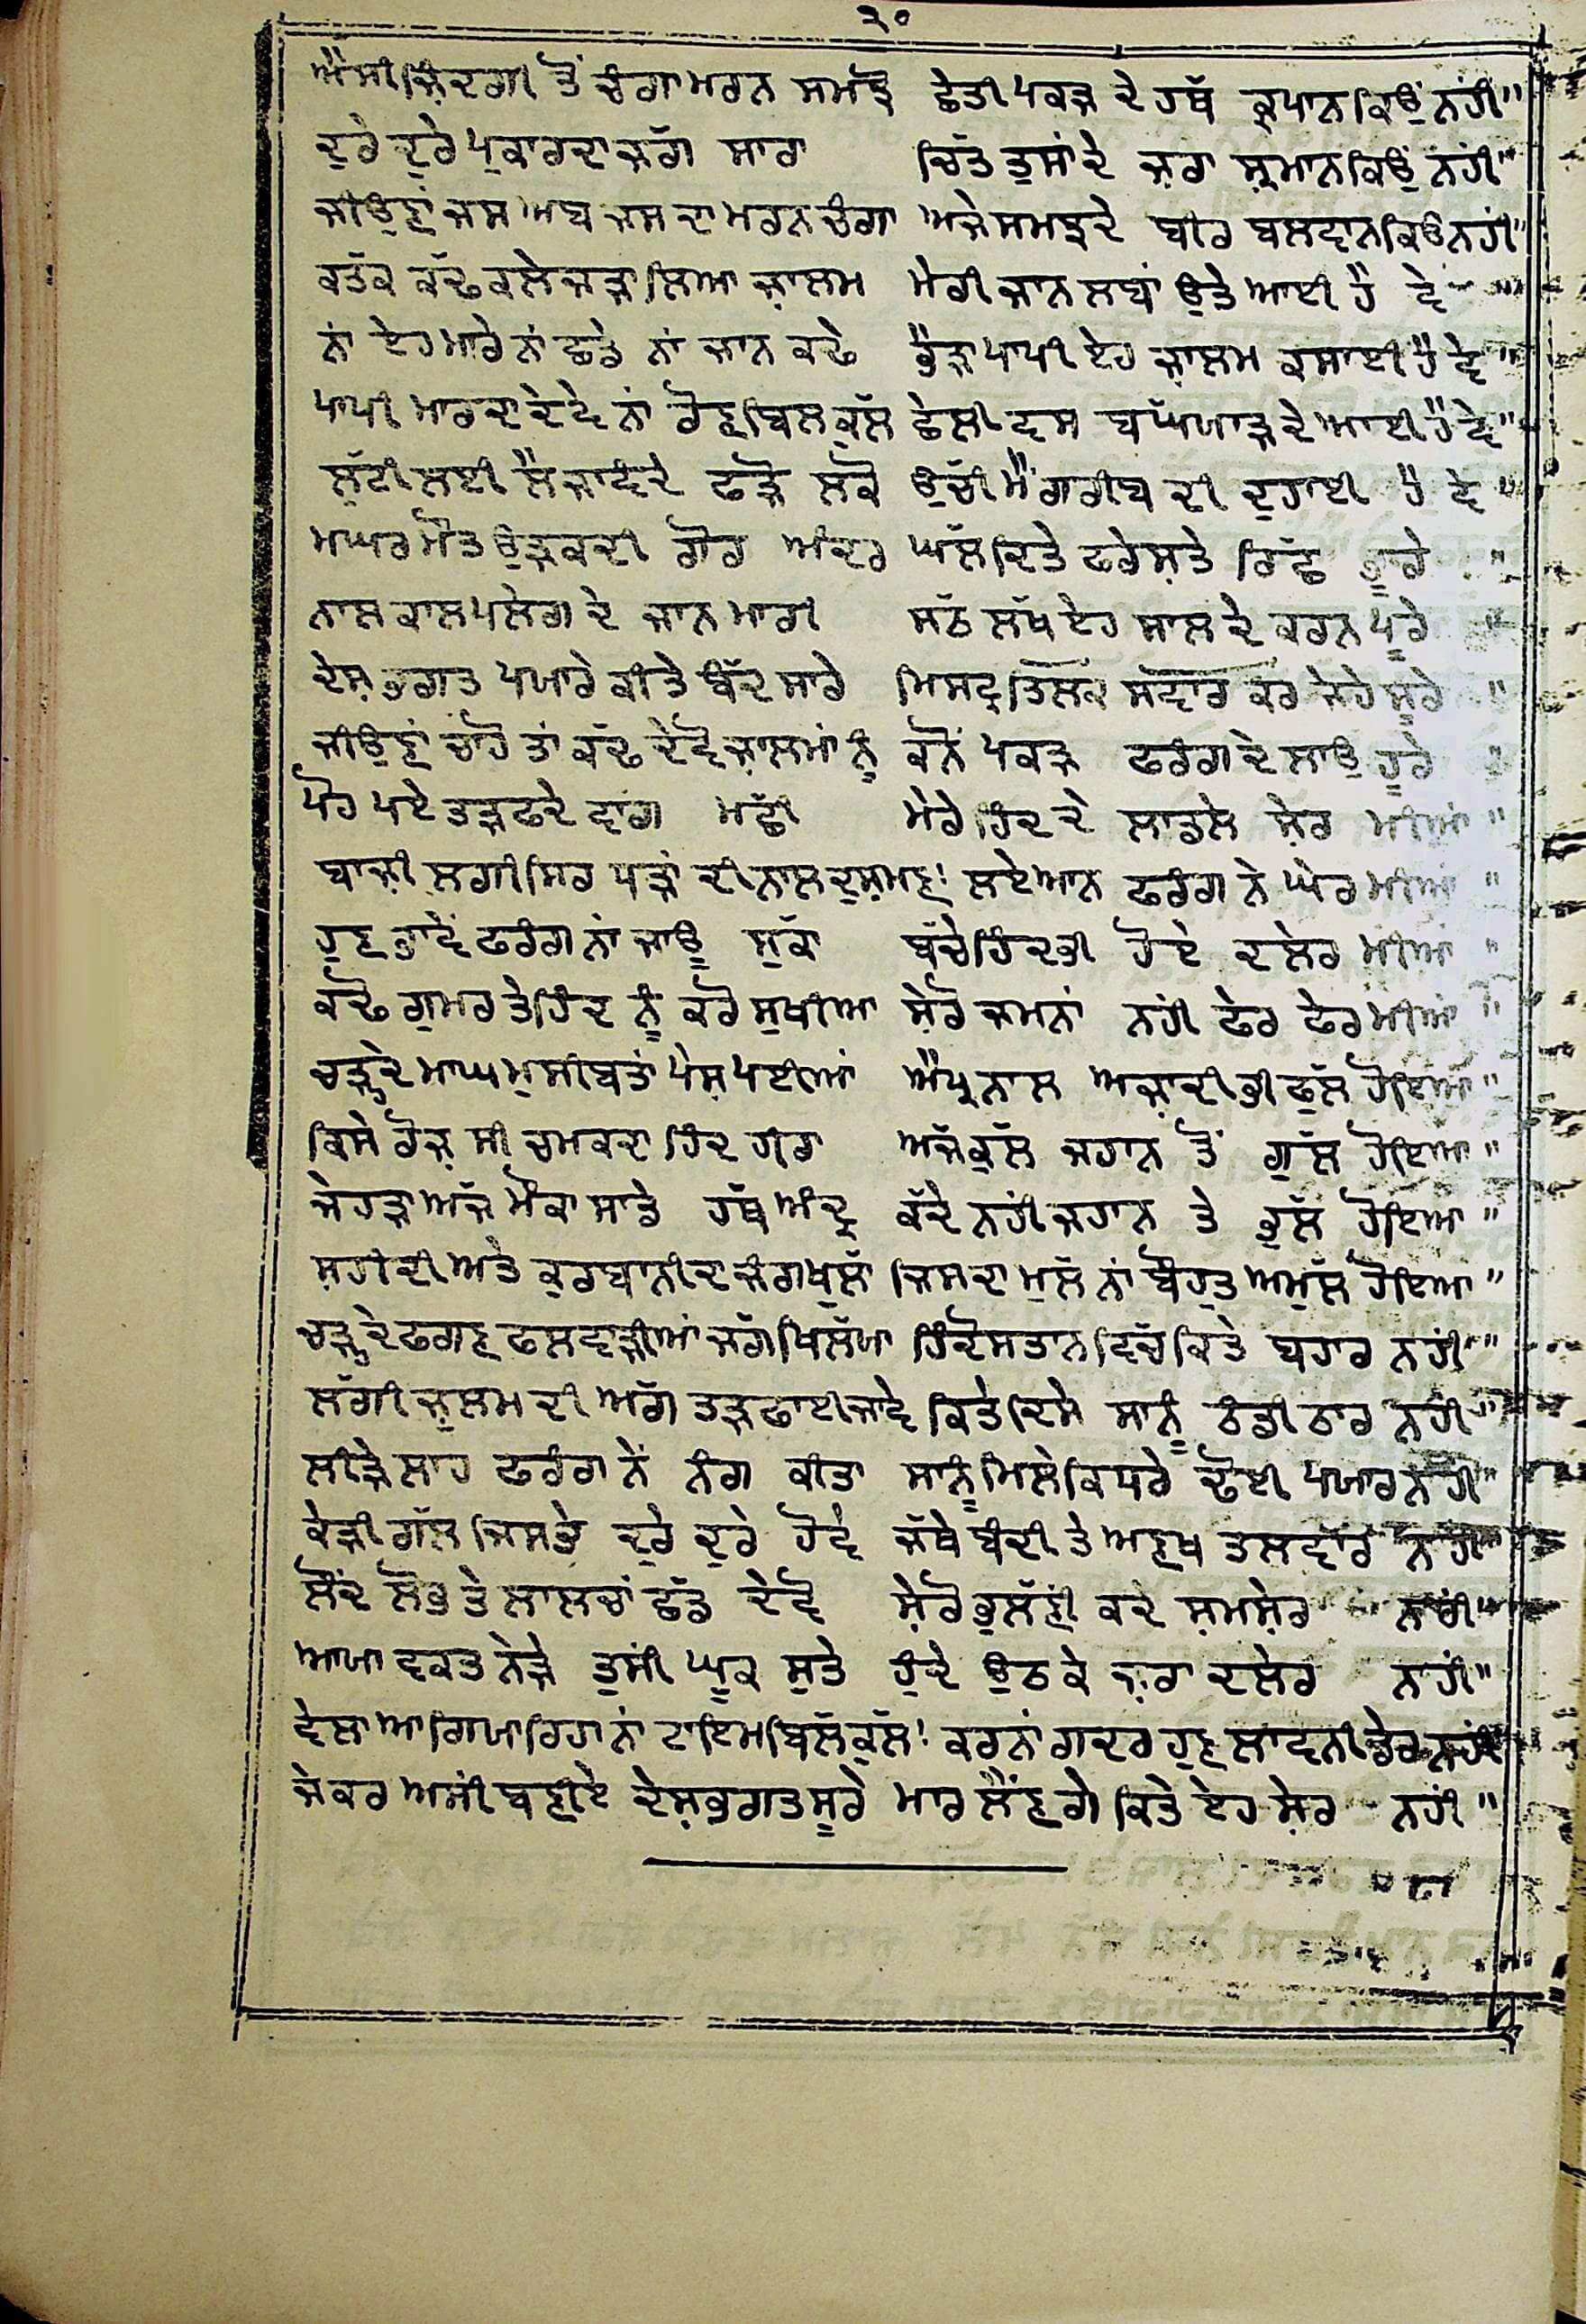 ੨੦
ਐਸੀ ਜ਼ਿੰਦਗੀ ਤੋਂ ਚੰਗਾ ਮਰਨ ਸਮਝੋ ਛੇਤੀ ਪਕੜ ਦੇ ਹਥੱ ਕ੍ਰਪਾਨ ਕਿਉਂ ਨਹੀਂ"
ਦੁਰੇ ਦੁਰੇ ਪੁਕਾਰਦਾ ਜਗੱ ਸਾਰਾ ਚਿੱਤ ਤੁਸਾਂ ਦੇ ਜ਼ਰਾ ਸ਼੍ਰਮਾਨ ਕਿਉਂ ਨਹੀਂ"
ਜੀਉਣਾਂ ਜਸ ਅਬ ਜਸ ਦਾ ਮਰਨ ਚੰਗਾ ਅਜੇ ਸਮਝਦੇ ਬੀਰ ਬਲਵਾਨ ਕਿਉਂ ਨਹੀਂ"
ਕਤੱਕ ਕੱਢ ਕਲੇਜੜਾ ਲਿਆ ਜ਼ਾਲਮ ਮੇਰੀ ਜਾਨ ਲਬਾਂ ਉਤੇ ਆਈ ਹੈ ਵੇ
ਨਾਂ ਏਹ ਮਾਰੇ ਨਾਂ ਛਡੇ ਨਾਂ ਜਾਨ ਕਢੇ ਭੈੜਾ ਪਾਪੀ ਏਹ ਜ਼ਾਲਮ ਕਸਾਈ ਹੈ ਵੇ"
ਪਾਪੀ ਮਾਰਦਾ ਦੇਵੇ ਨਾਂ ਰੋਣ ਬਿਲਕੁਲੱ ਛੇਲੀ ਵਸ ਬਘੱਯਾੜ ਦੇ ਆਈ ਹੈ ਵੇ"
ਲੁੱਟੀ ਲਈ ਲੈ ਜਾਂਵਦੇ ਫੜੋ ਲੋਕੋ ਉਚੱੀ ਮੈਂ ਗਰੀਬ ਦੀ ਦੁਹਾਈ ਹੈ ਵੇ"
ਮਘਰ ਮੌਤ ਉਡੀਕਦੀ ਗੋਰ ਅੰਦਰ ਘੱਲ ਦਿਤੇ ਫਰੇਸ਼ਤੇ ਰਿੱਛ ਭੂਰੇ"
ਨਾਲ ਕਾਲ ਪਲੇਗ ਦੇ ਜਾਨ ਮਾਰੀ ਸਠ ਲੱਖ ਏਹ ਸਾਲ ਦੇ ਕਰਨ ਪੂਰੇ"
ਦੇਸ਼ ਭਗਤ ਪਯਾਰੇ ਕੀਤੇ ਬੰਦ ਸਾਰੇ ਮਿਸਟ੍ਰ ਤਿਲਕ ਸਵਾਰਕਰ ਜੇਹੇ ਸੂਰੇ"
ਜੀਉਣਾਂ ਚਾਹੋ ਤਾਂ ਕੱਢ ਦੇਵੋ ਜ਼ਾਲਮਾਂ ਨੂੰ ਕਨੋਂ ਪਕੜ ਫਰੰਗ ਦੇ ਲਾਉ ਹੂਰੇ"
ਪੋਹ ਪਏ ਤੜਫਦੇ ਵਾਂਗ ਮਛੱੀ ਮੇਰੇ ਹਿੰਦ ਦੇ ਲਾਡਲੇ ਸ਼ੇਰ ਮੀਆਂ"
ਬਾਜ਼ੀ ਲਗੀ ਸਿਰ ਧੜਾਂ ਦੀ ਨਾਲ ਦੁਸ਼ਮਣਾਂ ਲਏ ਆਨ ਫਰੰਗ ਨੇ ਘੇਰ ਮੀਆਂ"
ਹੁਣ ਭਾਵੇਂ ਫਰੰਗ ਨਾਂ ਜਾਊ ਸੁਕੱਾ ਬੱਚੇ ਹਿੰਦ ਭੀ ਹੋਏ ਦਲੇਰ ਮੀਆਂ"
ਕਢੋ ਗੁਮਰ ਤੇ ਹਿੰਦ ਨੂੰ ਕਰੋ ਸੁਖੀਆ ਸ਼ੇਰੋ ਜਮਨਾਂ ਨਹੀਂ ਫੇਰ ਫੇਰ ਮੀਆਂ"
ਚੜ੍ਹਦੇ ਮਾਘ ਮੁਸੀਬਤਾਂ ਪੇਸ਼ ਪਈਆਂ ਐਧ੍ਰ ਨਾਲ ਅਜ਼ਾਦੀ ਭੀ ਫੁੱਲ ਹੋਇਆ"
ਕਿਸੇ ਰੋਜ਼ ਸੀ ਚਮਕਦਾ ਹਿੰਦ ਹੀਰਾ ਅਜੱ ਕੁਲੱ ਜਹਾਨ ਤੋਂ ਗੁਲੱ ਹੋਇਆ"
ਜੇਹੜਾ ਅਜੱ ਮੌਕਾ ਸਾਡੇ ਹਥੱ ਅੰਦ੍ਰ ਕੱਦੇ ਨਹੀਂ ਜਹਾਨ ਤੇ ਭੁਲੱ ਹੋਇਆ"
ਸ਼ਹੀਦੀ ਅਤੇ ਕੁਰਬਾਨੀ ਦਾ ਜੰਗ ਖੁਲੱਾ ਜਿਸਦਾ ਮੁਲੱ ਨਾਂ ਬੌਹੁਤ ਅਮੁਲੱ ਹੋਇਆ"
ਚੜ੍ਹਦੇ ਫਗਣ ਫਲਵਾੜੀਆਂ ਜਗੱ ਖਿਲੱਯਾ ਹਿੰਦੋਸਤਾਨ ਵਿਚੱ ਕਿਤੇ ਬਹਾਰ ਨਹੀਂ"
ਲੱਗੀ ਜ਼ੁਲਮ ਦੀ ਅਗੱ ਤੜਫਾਈ ਜਾਵੇ ਕਿਤੇ ਦਿਸੇ ਸਾਨੂੰ ਠੰਡੀ ਠਾਰ ਨਹੀਂ
ਲੀੜੇ ਲਾਹ ਫਰੰਗ ਨੇਂ ਨੰਗ ਕੀਤਾ ਸਾਨੂੰ ਮਿਲੇ ਕਿਧਰੇ ਢੋਈ ਪਯਾਰ ਨਹੀਂ"
ਕੇੜੀ ਗੱਲ ਜਿਸਤੇ ਦੁਰੇ ਦੁਰੇ ਹੋਵੇ ਜੱਥੇ ਬੰਦੀ ਤੇ ਅਣਖ ਤਲਵਾਰ ਨਹੀਂ
ਲੋਂਦੇ ਲੋਭ ਤੇ ਲਾਲਚਾਂ ਛੱਡ ਦੇਵੋ ਸ਼ੇਰੋ ਭੁਲੱਣੀ ਕਦੇ ਸ਼ਮਸ਼ੇਰ ਨਾਹੀਂ"
ਆਯਾ ਵਕਤ ਨੇੜੇ ਤੁਸੀਂ ਘੂਕ ਸੁਤੇ ਹੁੰਦੇ ਉਠਕੇ ਜ਼ਰਾ ਦਲੇਰ ਨਾਹੀਂ"
ਵੇਲਾ ਆ ਗਿਯਾ ਰਿਹਾ ਨਾਂ ਟਾਇਮ ਬਿਲੱਕੁਲੱ! ਕਰਨਾਂ ਗਦਰ ਹੁਣ ਲਾਵਨੀ ਡੇਰ ਨਹੀਂ
ਜੇਕਰ ਅਸੀਂ ਬਣੀਏ ਦੇਸ਼ ਭਗਤ ਸੂਰੇ ਮਾਰ ਲੈਂਣਗੇ ਕਿਤੇ ਏਹ ਸ਼ੇਰ ਨਹੀਂ"